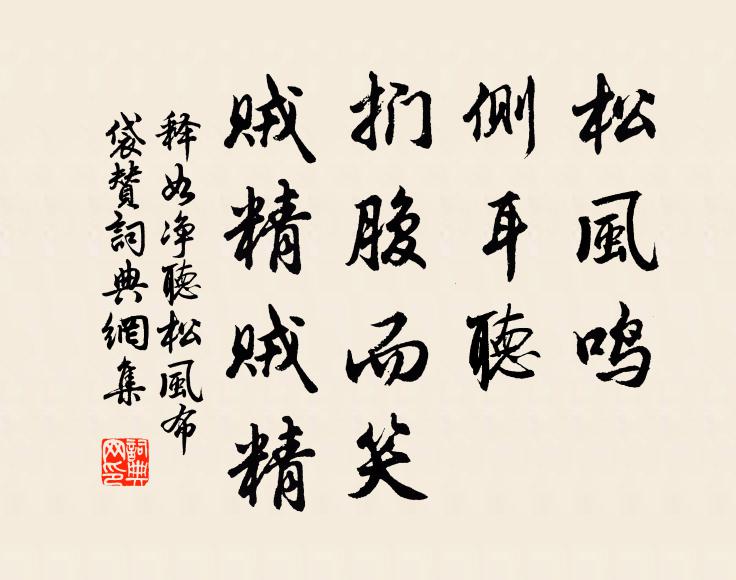 松風鸣
側耳聽
捫腹而笑
贼精贼精
释如净聽松風布
袋贊詞典網集
詞典
网印